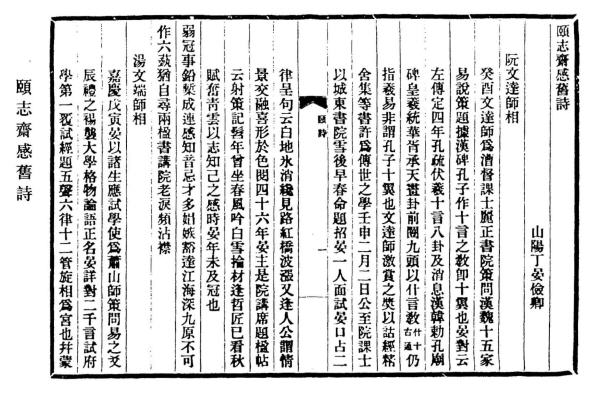 頤志齋感舊詩
山陽丁晏儉卿
阮文達師相
癸酉文達師爲漕督課士麗正書院策問漢魏十五家
易說策題據漢碑孔子作十言之敎卽十翼也晏對云
左傳定四年孔疏伏羲十言八卦及消息漢韓勅孔廟
碑皇羲統華胥承天畫卦前闓九頭以什言敎什十古通仍
指羲易非謂孔子十翼也文達師激賞之奬以詁經精
舍集等書許爲傳世之學壬申二月二日公至院課士
以城東書院雪後早春命題招晏一人面試晏口占二
頤詩
一
律呈句云白地氷消纔見路紅橋波漲又逢人公謂情
景交融喜形於色閱四十六年晏主是院講席題楹帖
云射策記髫年曾坐春風吟白雪掄材逢哲匠已看秋
賦奮靑雲以志知己之感時晏年未及冠也
弱冠事鉛槧成連感知音忌才多娼嫉豁達江海深九原不可
作六蓺猶自尋兩楹書講院老淚頻沾襟
湯文端師相
嘉慶戊寅晏以諸生應試學使爲蕭山師策問易之爻
辰禮之裼襲大學格物論語正名晏詳對二千言試府
學第一覆試經題五聲六律十二管旋相爲宮也幷蒙
頤志齋感舊詩